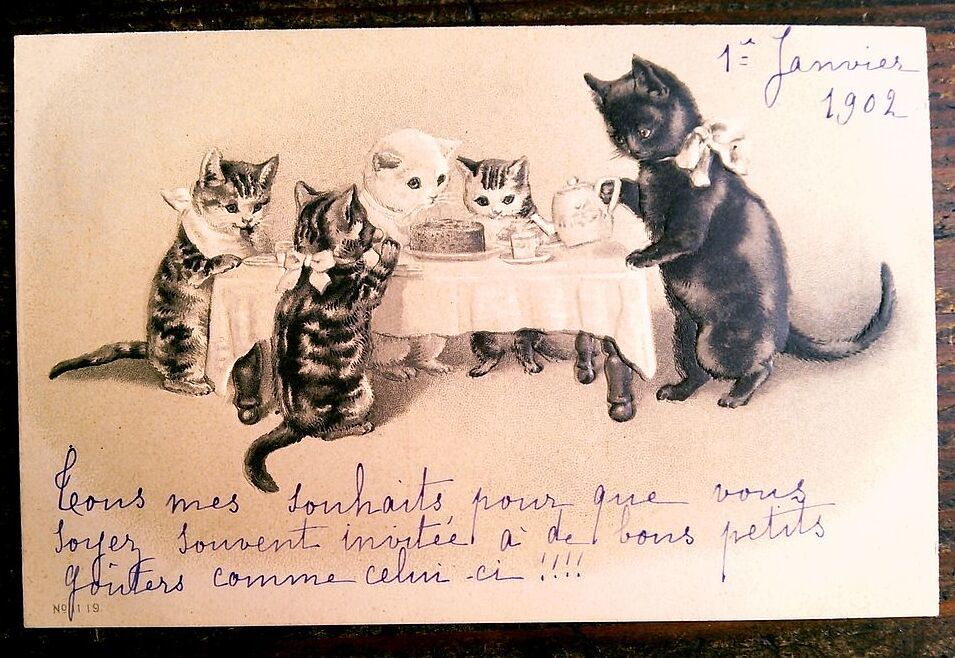 1er Janvier
1902
Tous mes souhaits pour que vous
soyez souvent invitée à de bons petits
goûters comme celui-ci !!!!
No 1119.